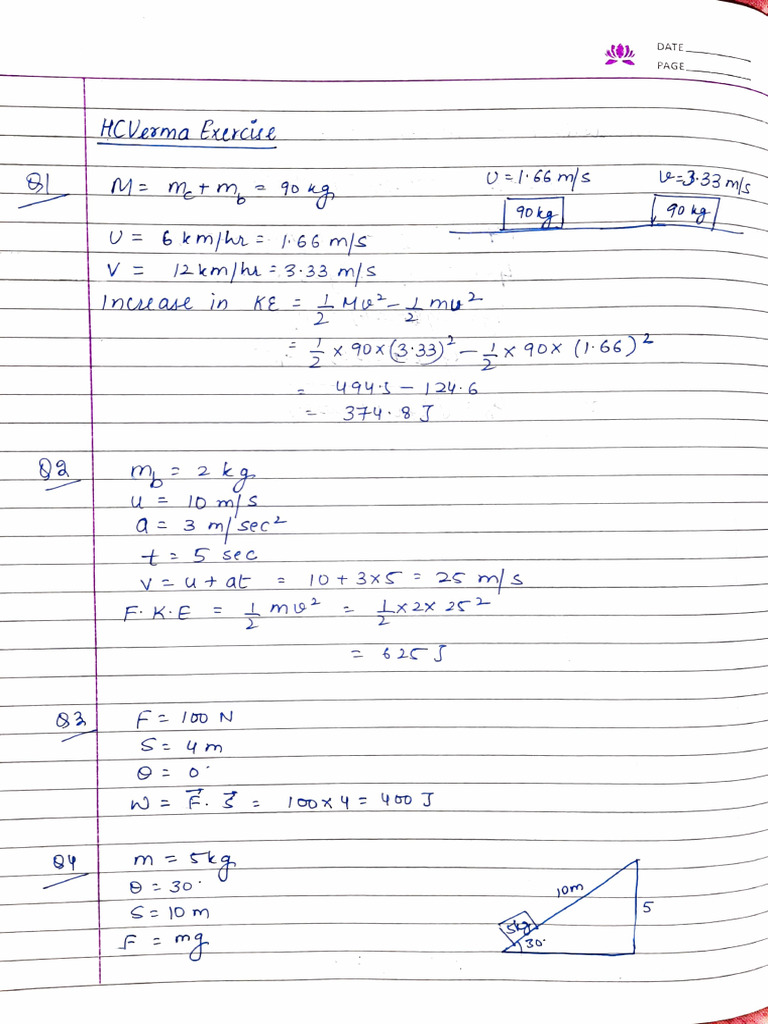 DATE
PAGE
HCVerma Exercise
Q1
M = mc + mb = 90 kg
U = 1.66 m/s
v = 3.33 m/s
90 kg
90 kg
U = 6 km/hr = 1.66 m/s
V = 12 km/hr = 3.33 m/s
Increase in KE = 1/2 Mv² - 1/2 mu²
= 1/2 × 90 × (3.33)² - 1/2 × 90 × (1.66)²
= 494.5 - 124.6
= 374.8 J
Q2
mb = 2 kg
u = 10 m/s
a = 3 m/sec²
t = 5 sec
V = u + at = 10 + 3×5 = 25 m/s
F.K.E = 1/2 mv² = 1/2 × 2 × 25²
= 625 J
Q3
F = 100 N
S = 4 m
θ = 0°
W = F⃗ . S⃗ = 100 × 4 = 400 J
Q4
m = 5kg
θ = 30°
S = 10 m
F = mg
10m
5
5kg
30°